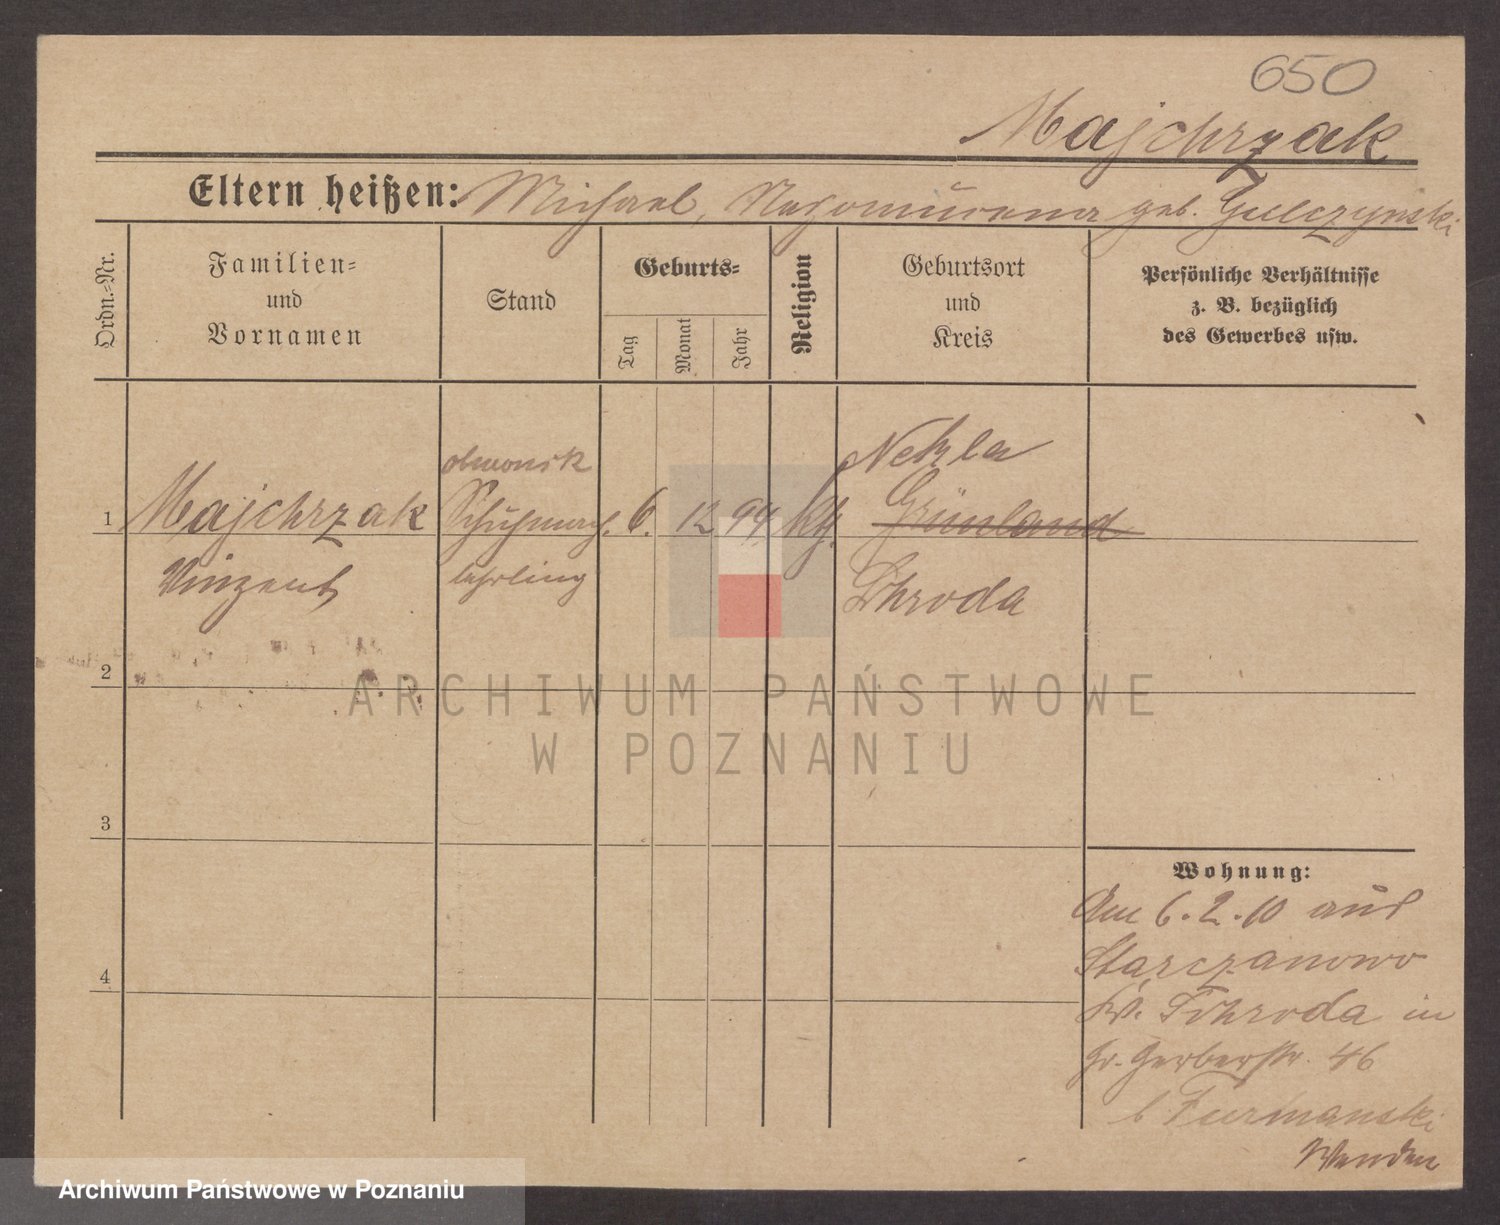 650
Majchrzak
Eltern heißen: Michael, Nepomucena geb. Gulczynski
Ordn.=Nr.
Familien=
und
Vornamen
Stand
Geburts=
Tag
Monat
Jahr
Religion
Geburtsort
und
Kreis
Persönliche Verhältnisse
z. B. bezüglich
des Gewerbes usw.
1
Majchrzak
Vinzent
Schuhmach.
lehrling
6. 12 94 kth.
Nekla
Grünland
Schroda
2
3
4
ARCHIWUM PAŃSTWOWE
W POZNANIU
Wohnung:
Am 6.2.10 aus
Starczanowo
Kr. Schroda in
Gr. Gerberstr. 46
b Furmanski
Wenden
Archiwum Państwowe w Poznaniu